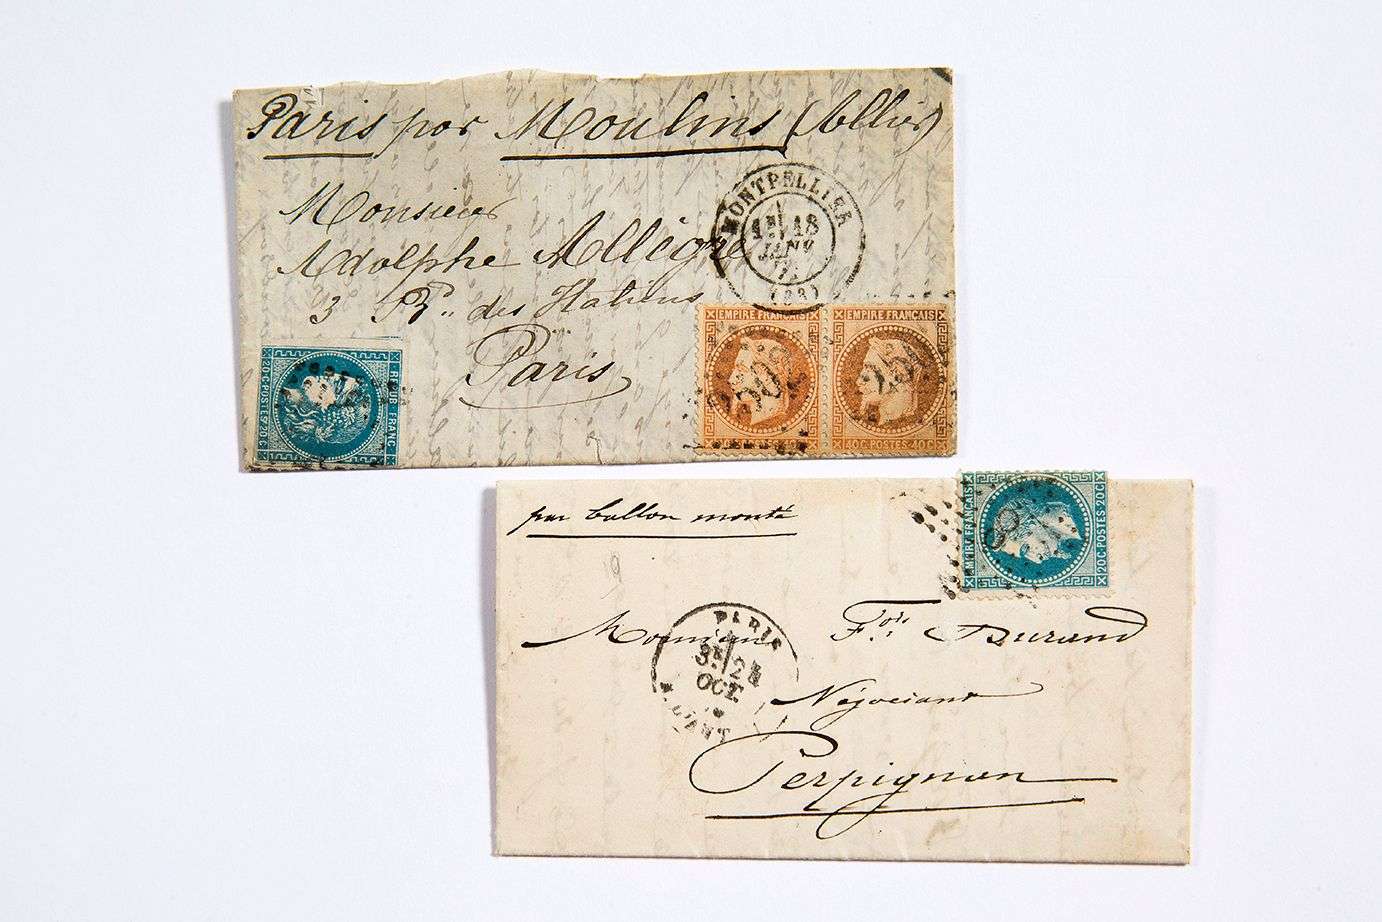 Paris par Moulins (Allier)
Monsieur
Adolphe Allègre
3 Bd. des Italiens
Paris
MONTPELLIER
18
JANV
(33)
20·C·POSTES·20·C
REPUB·FRANC
EMPIRE FRANCAIS
40C·POSTES·40C
EMPIRE FRANÇAIS
40C·POSTES·40C
par ballon monté
EMPIRE FRANÇAIS
20C·POSTES·20C
PARIS
OCT.
Monsieur Fois Durand
Négociant
Perpignan